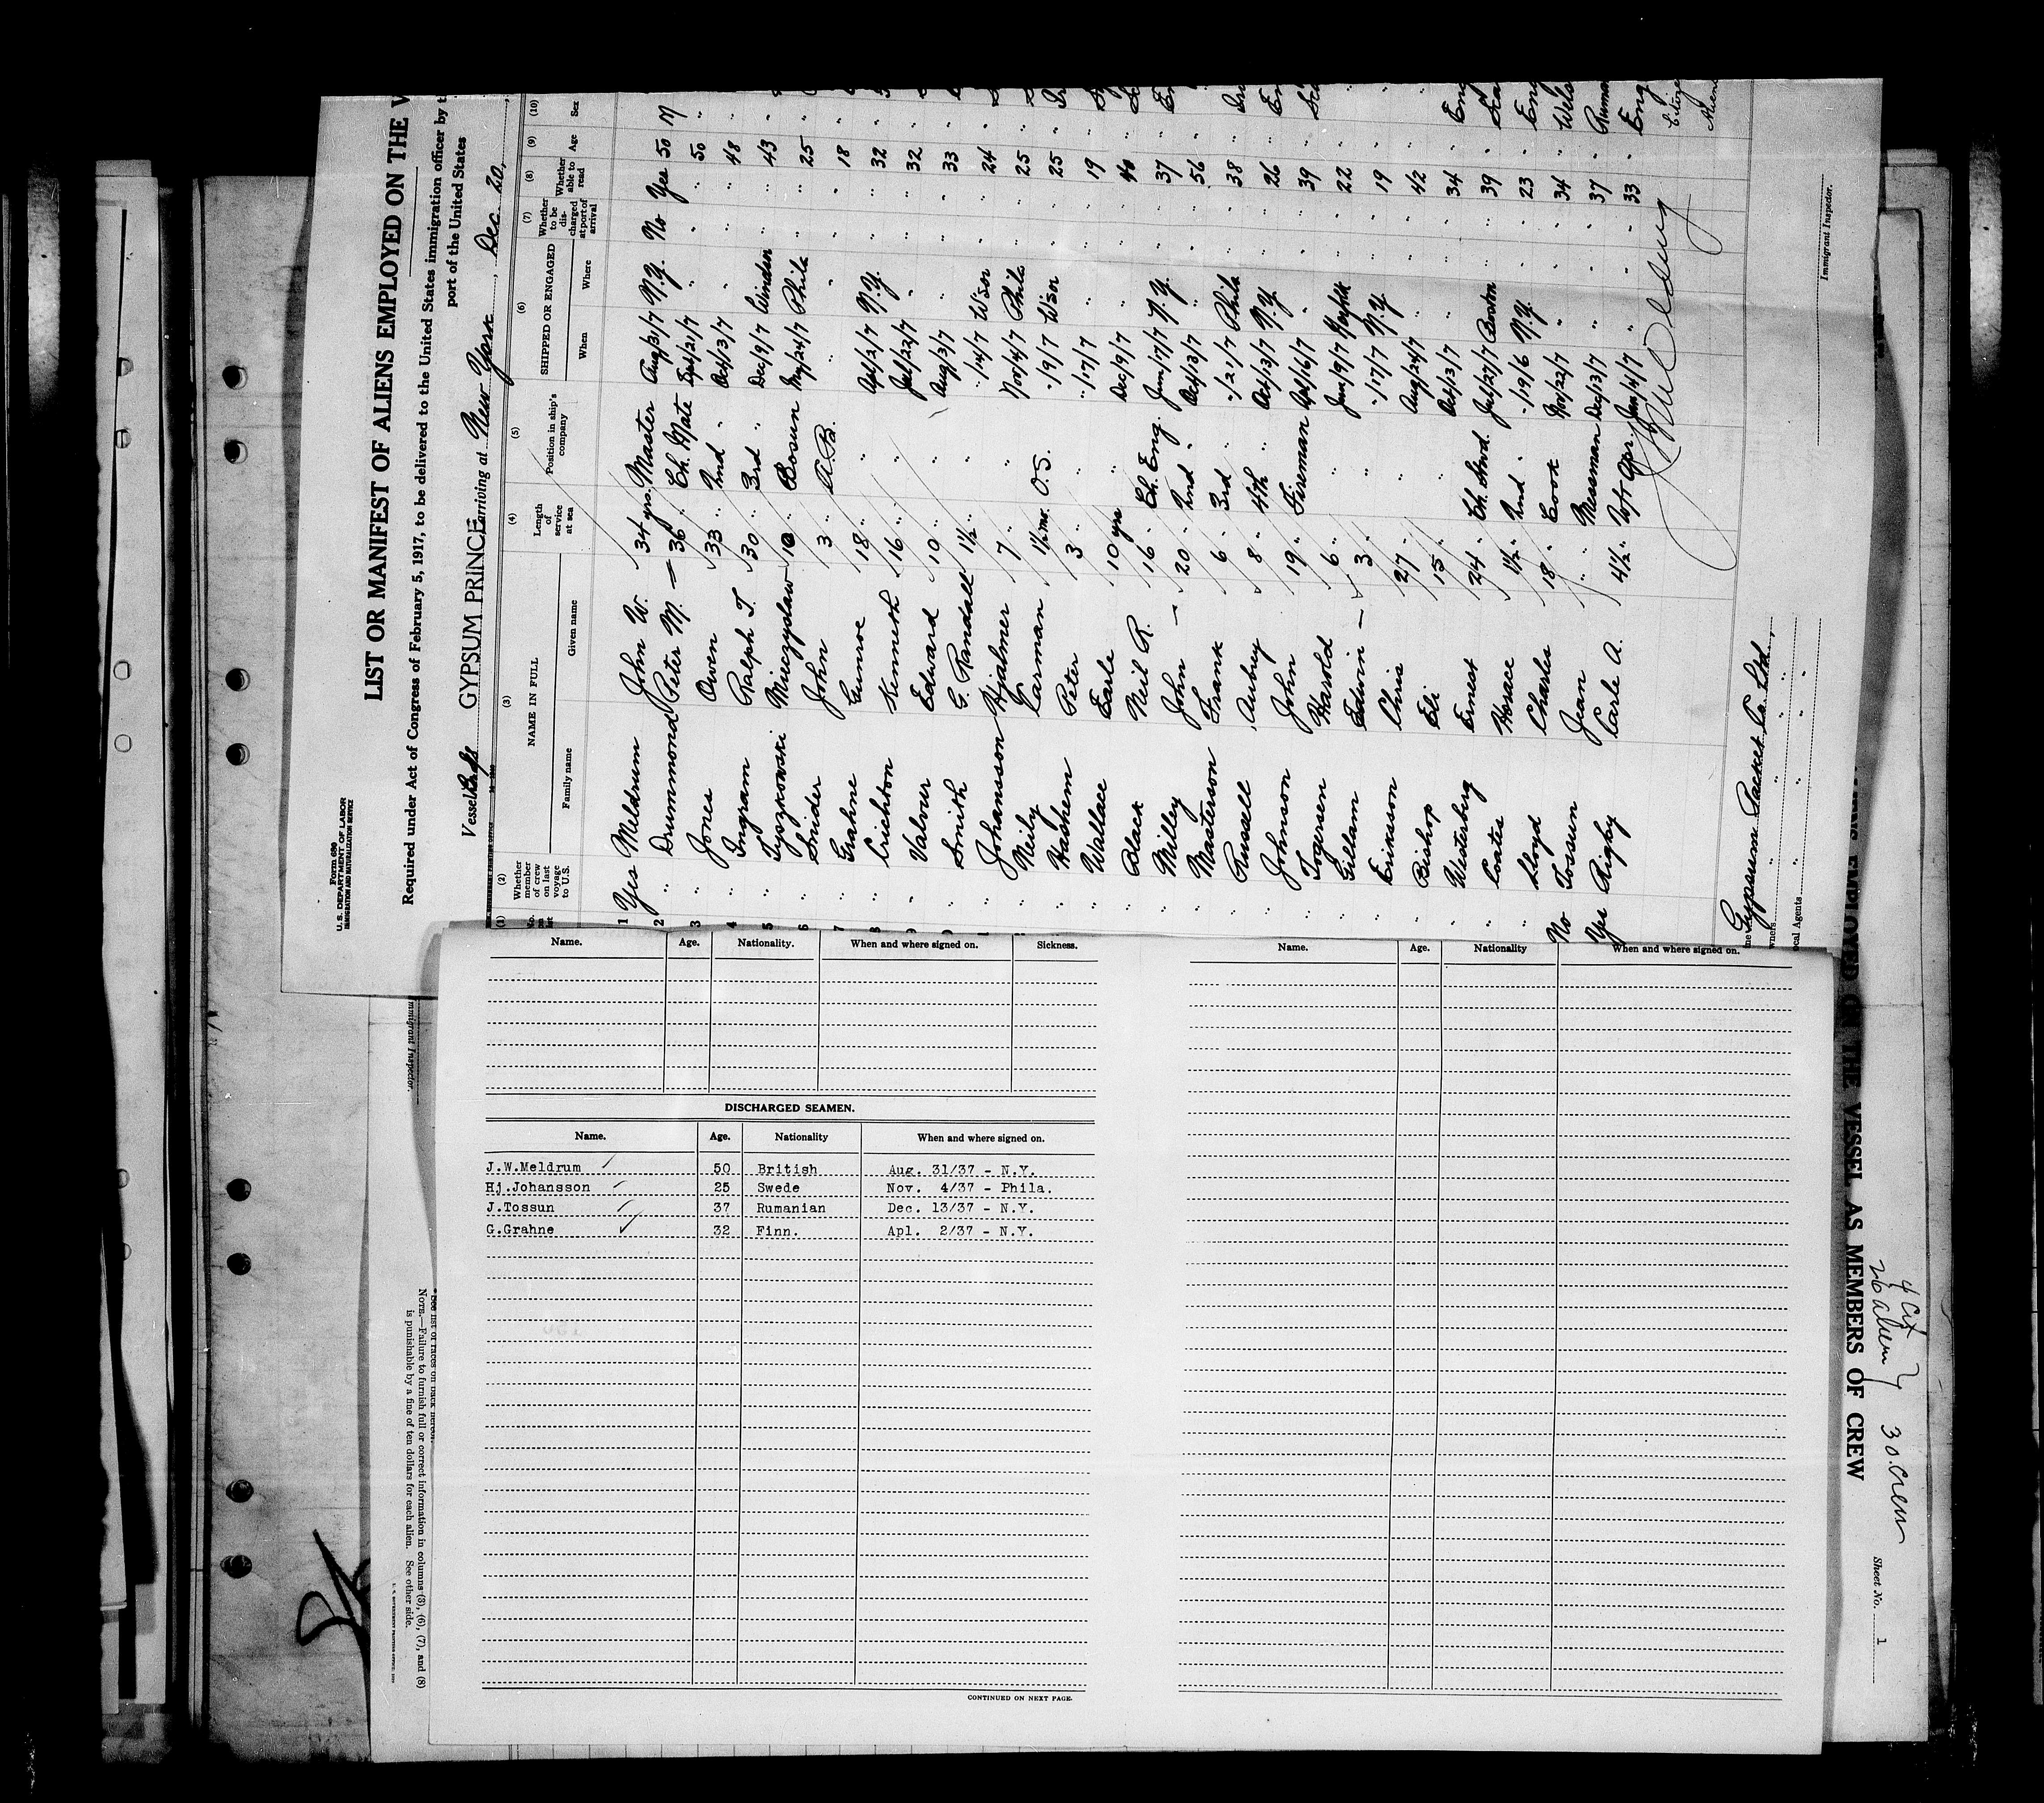 Form 680
U. S. DEPARTMENT OF LABOR
IMMIGRATION AND NATURALIZATION SERVICE
LIST OR MANIFEST OF ALIENS EMPLOYED ON THE V
Required under Act of Congress of February 5, 1917, to be delivered to the United States immigration officer by t
port of the United States
Vessel GYPSUM PRINCE arriving at New York, Dec. 20,
(1) (2) (3) (4) (5) (6) (7) (8) (9) (10)
Whether member of crew on last voyage to U.S. NAME IN FULL Family name Given name Length of service at sea Position in ship's company SHIPPED OR ENGAGED When Where Whether to be discharged at port of arrival Whether able to read Age Sex
1 Yes Meldrum John W. 34 yrs. Master Aug/31/7 N.Y. No Yes 50 M
2 " Drummond Peter M. 36 " Ch. Mate /21/7 " " " 50 "
3 " Jones Owen 33 " 2nd " Oct/13/7 " " " 48 "
4 " Ingram Ralph T. 30 " 3rd " Dec/9/7 Windsor " " 43 "
5 " Tyszkowski Mieczyslaw 10 " Bosun May/24/7 Phila " " 25 "
6 " Snider John 3 " A.B. " " " " 18 "
7 " Grahne Gunroe 18 " " Apl/2/7 N.Y. " " 32 "
8 " Crichton Kenneth 16 " " Jul/22/7 " " " 32 "
9 " Valour Edward 10 " " Aug/3/7 " " " 33 "
" Smith G. Randall 1½ " " " /14/7 W'sor " " 24 "
" Johansson Hjalmer 7 " " Nov/4/7 Phila " " 25 "
" Neily Carman 1½ mo. O.S. " /9/7 W'sor " " 25 "
" Hashem Peter 3 " " " /17/7 " " " 19 "
" Wallace Earle 10 yrs " Dec/9/7 " " " 40 "
" Black Neil R. 16 " Ch. Eng. Jun/17/7 N.Y. " " 37 "
" Milley John 20 " 2nd " Oct/13/7 " " " 56 "
" Masterson Frank 6 " 3rd " " /21/7 Phila " " 38 "
" Russell Aubrey 8 " 4th " Oct/13/7 N.Y. " " 26 "
" Johnson John 19 " Fireman Apl/16/7 " " " 39 "
" Togersen Harold 6 " " Jun/9/7 " " 22 "
" Gillam Edwin 3 " " " /17/7 N.Y. " " 19 "
" Eriksson Chris 27 " " Aug/24/7 " " " 42 "
" Bishop Eli 15 " " Oct/13/7 " " " 34 " Eng
" Westerberg Ernest 24 " Ch. Stwd. Jul/27/7 Boston " " 39 "
" Coates Horace 1½ " 2nd " " /19/6 N.Y. " " 23 " Eng
" Lloyd Charles 18 " Cook Nov/22/7 " " " 34 " Wels
No Tossun Jean " " Messman Dec/13/7 " " " 37 " Ruma
Yes Rigby Carle A. 4½ " W/T Opr. Jan/4/7 " " " 33 " Eng
Gypsum Packet Co. Ltd.,
wners " " " "
ocal Agents " " " "
Immigrant Inspector.
Name. Age. Nationality. When and where signed on. Sickness.
DISCHARGED SEAMEN.
Name. Age. Nationality When and where signed on.
J.W.Meldrum 50 British Aug. 31/37 - N.Y.
Hj.Johansson 25 Swede Nov. 4/37 - Phila.
J.Tossun 37 Rumanian Dec. 13/37 - N.Y.
G.Grahne 32 Finn. Apl. 2/37 - N.Y.
CONTINUED ON NEXT PAGE.
Name. Age. Nationality When and where signed on.
mmigrant Inspector.
NOTE.—Failure to furnish full or correct information in columns (3), (6), (7), and (8)
is punishable by a fine of ten dollars for each alien. See other side.
THE VESSEL AS MEMBERS OF CREW
4 Cit
26 Alien
30 Crew
Sheet No. 1